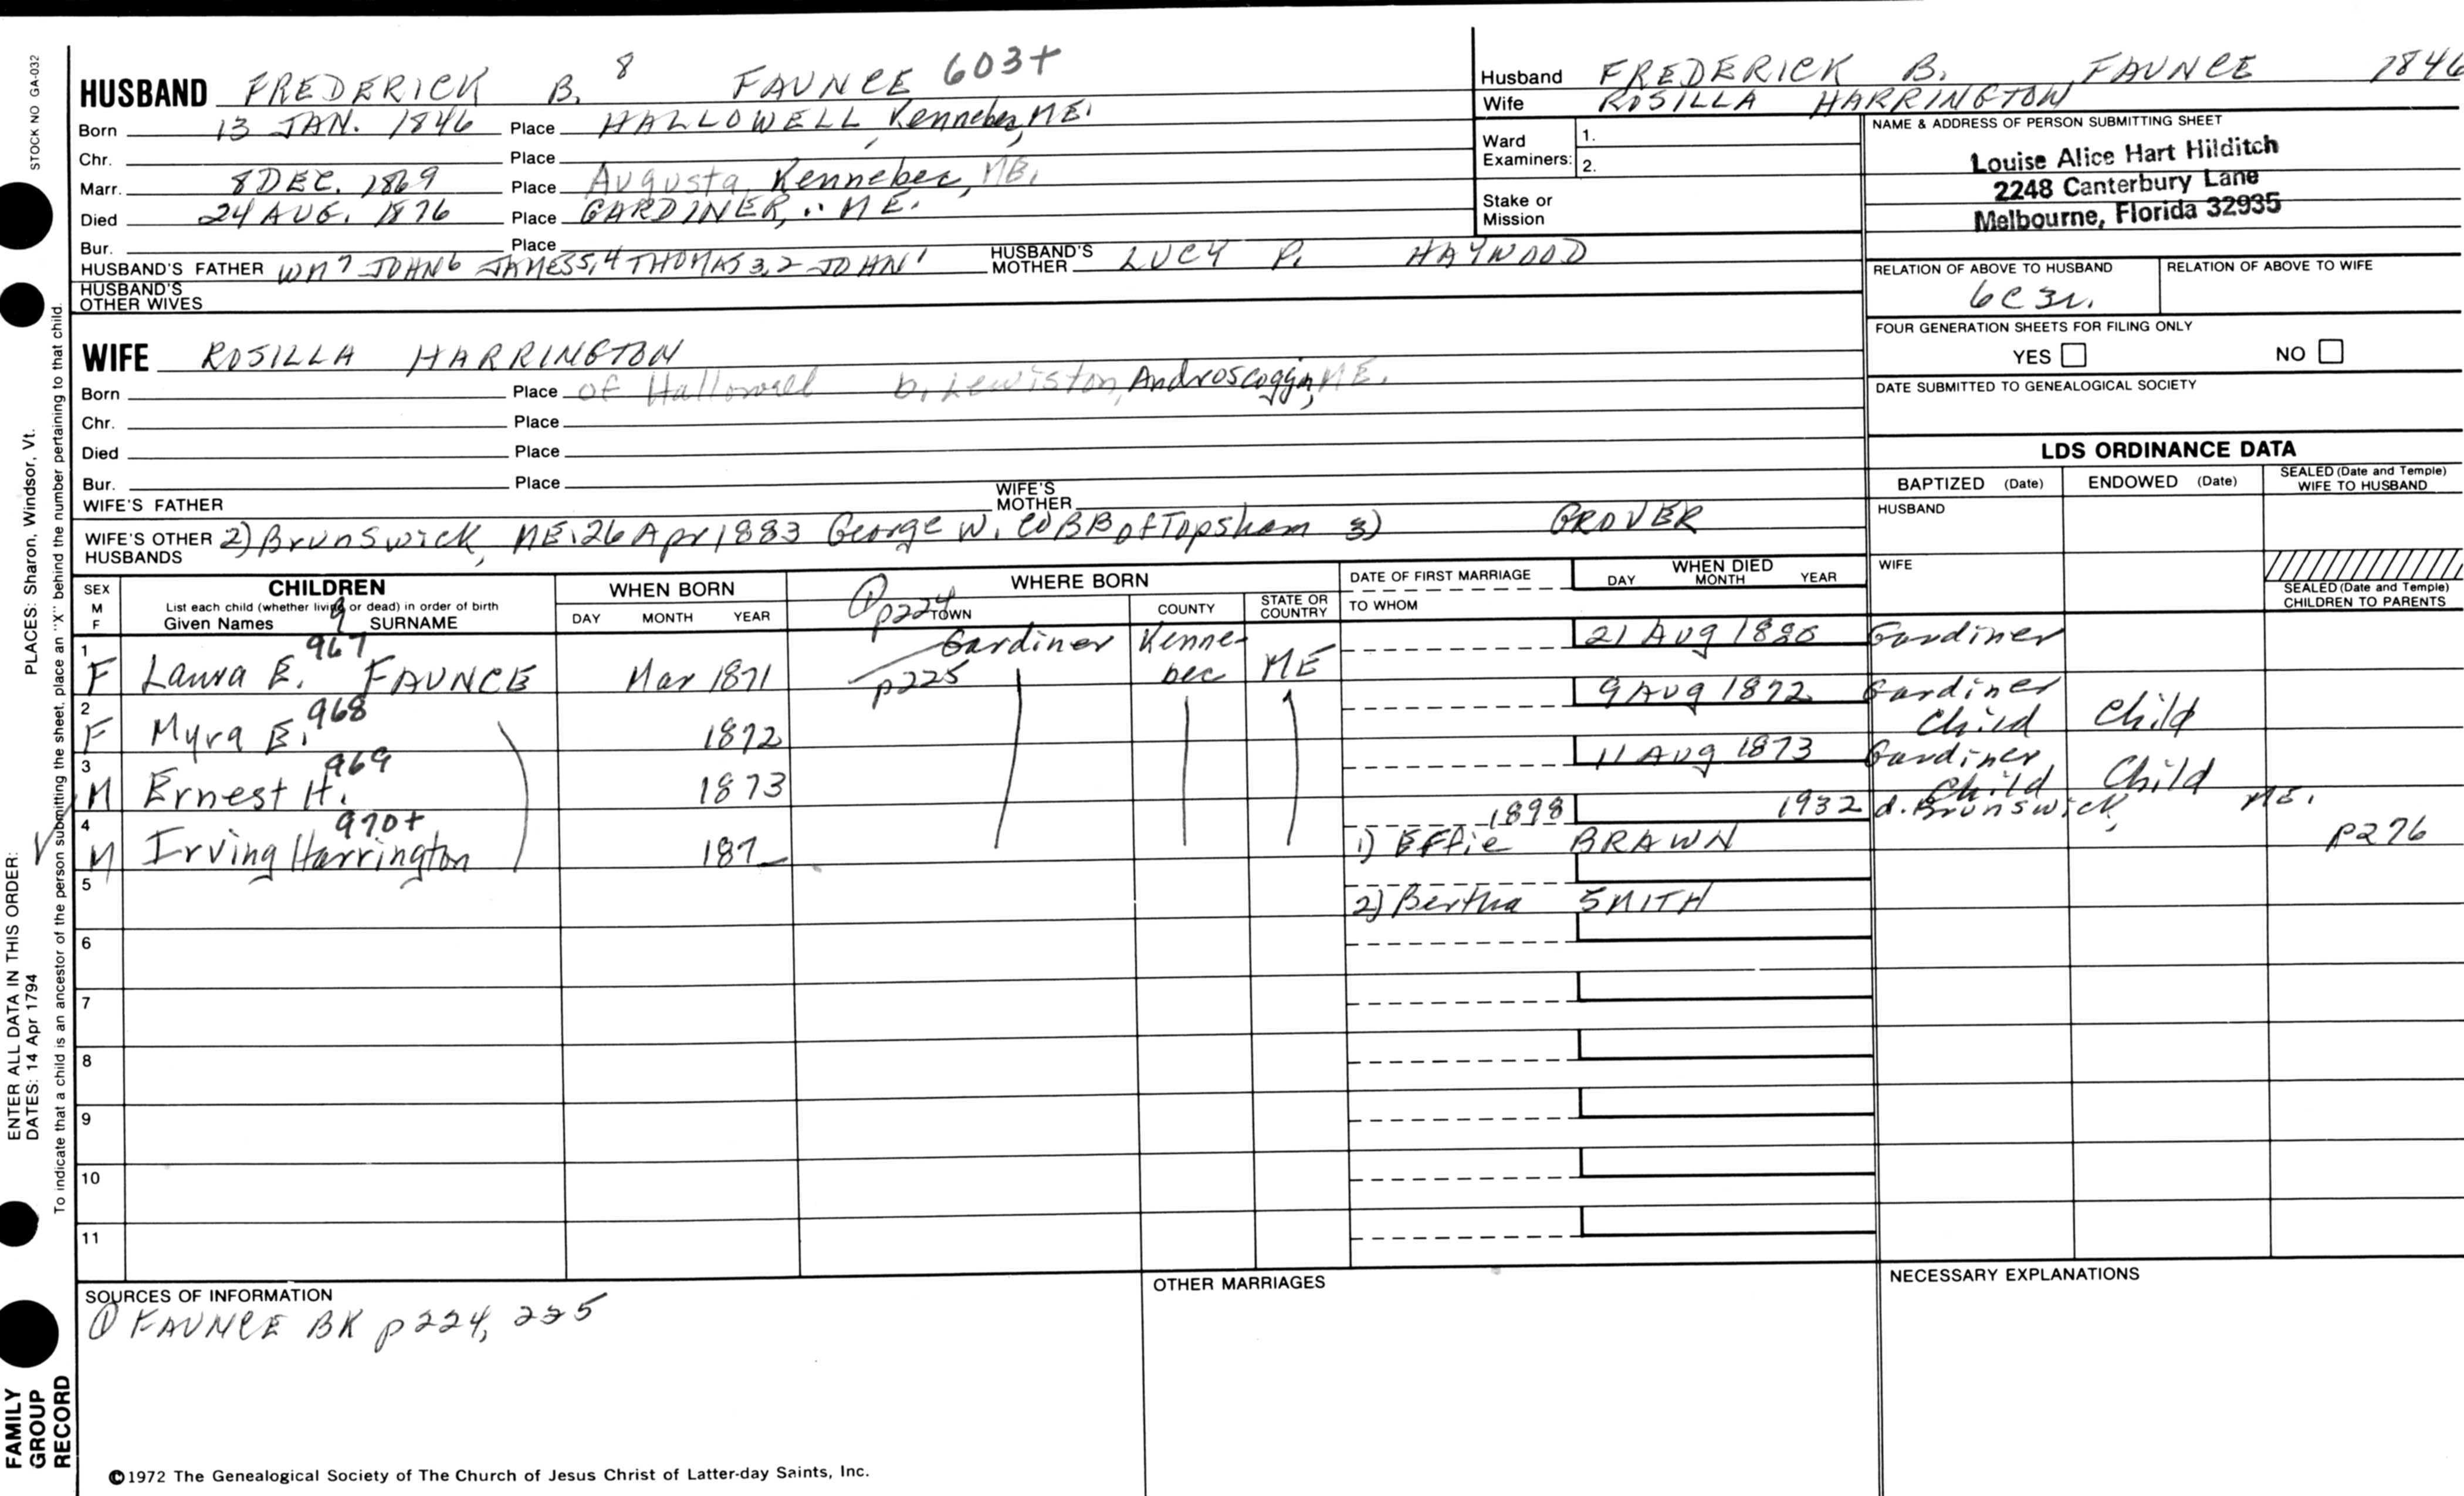 STOCK NO GA-032
HUSBAND FREDERICK B. 8 FAUNCE 603+
Born 13 JAN. 1846 Place HALLOWELL, Kennebec, ME.
Chr. Place
Marr. 8 DEC. 1869 Place Augusta, Kennebec, ME.
Died 24 AUG. 1876 Place GARDINER, " ME.
Bur. Place
HUSBAND'S FATHER WM7 JOHN6 JAMES5,4 THOMAS3,2 JOHN1 HUSBAND'S MOTHER LUCY P. HAYWOOD
HUSBAND'S OTHER WIVES
Husband FREDERICK B. FAUNCE 1846
Wife ROSILLA HARRINGTON
Ward Examiners: 1.
2.
Stake or Mission
NAME & ADDRESS OF PERSON SUBMITTING SHEET
Louise Alice Hart Hilditch
2248 Canterbury Lane
Melbourne, Florida 32935
RELATION OF ABOVE TO HUSBAND RELATION OF ABOVE TO WIFE
6C3r.
FOUR GENERATION SHEETS FOR FILING ONLY
YES NO
DATE SUBMITTED TO GENEALOGICAL SOCIETY
WIFE ROSILLA HARRINGTON
Born Place of Hallowell b. Lewiston, Androscoggin, ME.
Chr. Place
Died Place
Bur. Place
WIFE'S FATHER WIFE'S MOTHER
WIFE'S OTHER HUSBANDS 2) Brunswick, ME. 26 Apr 1883 George W. COBB of Topsham 3) GROVER
LDS ORDINANCE DATA
BAPTIZED (Date) ENDOWED (Date) SEALED (Date and Temple) WIFE TO HUSBAND
HUSBAND
WIFE
SEALED (Date and Temple) CHILDREN TO PARENTS
SEX M F CHILDREN List each child (whether living or dead) in order of birth Given Names 9 SURNAME
WHEN BORN DAY MONTH YEAR
WHERE BORN ① p224 TOWN COUNTY STATE OR COUNTRY
DATE OF FIRST MARRIAGE TO WHOM
WHEN DIED DAY MONTH YEAR
1 F Laura E. 967 FAUNCE Mar 1871 Gardiner Kennebec ME Gardiner
p225
2 F Myra E. 968 1872 9 Aug 1872 Gardiner Child Child
3 M Ernest H. 969 1873 11 Aug 1873 Gardiner Child Child
4 M Irving Harrington 970+ 187_ 1898 1) Effie BRAWN 1932 d. Brunswick, ME. p276
5 2) Bertha SMITH
6
7
8
9
10
11
SOURCES OF INFORMATION
① FAUNCE BK p224, 225
OTHER MARRIAGES
NECESSARY EXPLANATIONS
©1972 The Genealogical Society of The Church of Jesus Christ of Latter-day Saints, Inc.
PLACES: Sharon, Windsor, Vt.
ENTER ALL DATA IN THIS ORDER:
DATES: 14 Apr 1794
To indicate that a child is an ancestor of the person submitting the sheet, place an "X" behind the number pertaining to that child.
FAMILY GROUP RECORD